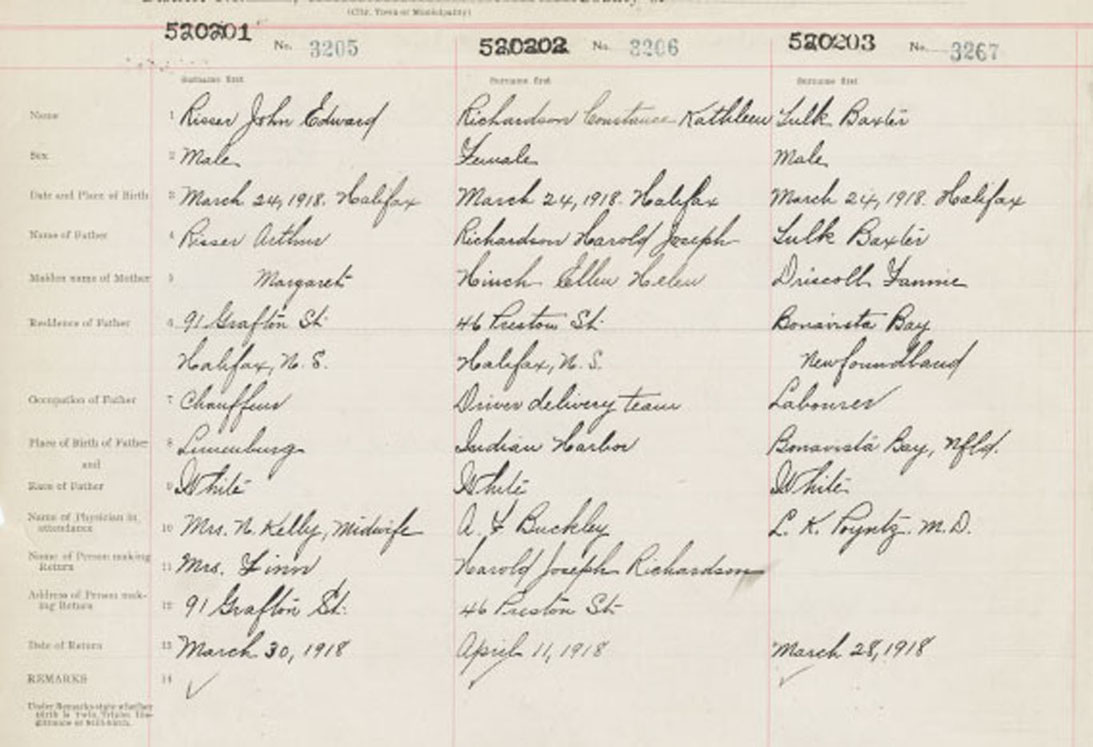 (City, Town or Municipality)
520201 No. 3205 520202 No. 3206 520203 No. 3267
Surname first Surname first Surname first
Name 1 Risser John Edward Richardson Constance Kathleen Sulk Baxter
Sex 2 Male Female Male
Date and Place of Birth 3 March 24, 1918. Halifax March 24, 1918. Halifax March 24, 1918. Halifax
Name of Father 4 Risser Arthur Richardson Harold Joseph Sulk Baxter
Maiden name of Mother 5 Margaret Hinch Ellen Helen Driscoll Fannie
Residence of Father 6 91 Grafton St. 46 Preston St. Bonavista Bay
Halifax, N.S. Halifax, N.S. Newfoundland
Occupation of Father 7 Chauffeur Driver delivery team Labourer
Place of Birth of Father 8 Lunenburg Indian Harbor Bonavista Bay, Nfld.
and
Race of Father 9 White White White
Name of Physician in
attendance 10 Mrs. N. Kelly, Midwife A. F. Buckley L. K. Poyntz. M.D.
Name of Person making
Return 11 Mrs. Finn Harold Joseph Richardson
Address of Person mak-
ing Return 12 91 Grafton St. 46 Preston St.
Date of Return 13 March 30, 1918 April 11, 1918 March 28, 1918
REMARKS 14
Under Remarks state whether
birth is Twin, Triplet, Ille-
gitimate or Still-birth.